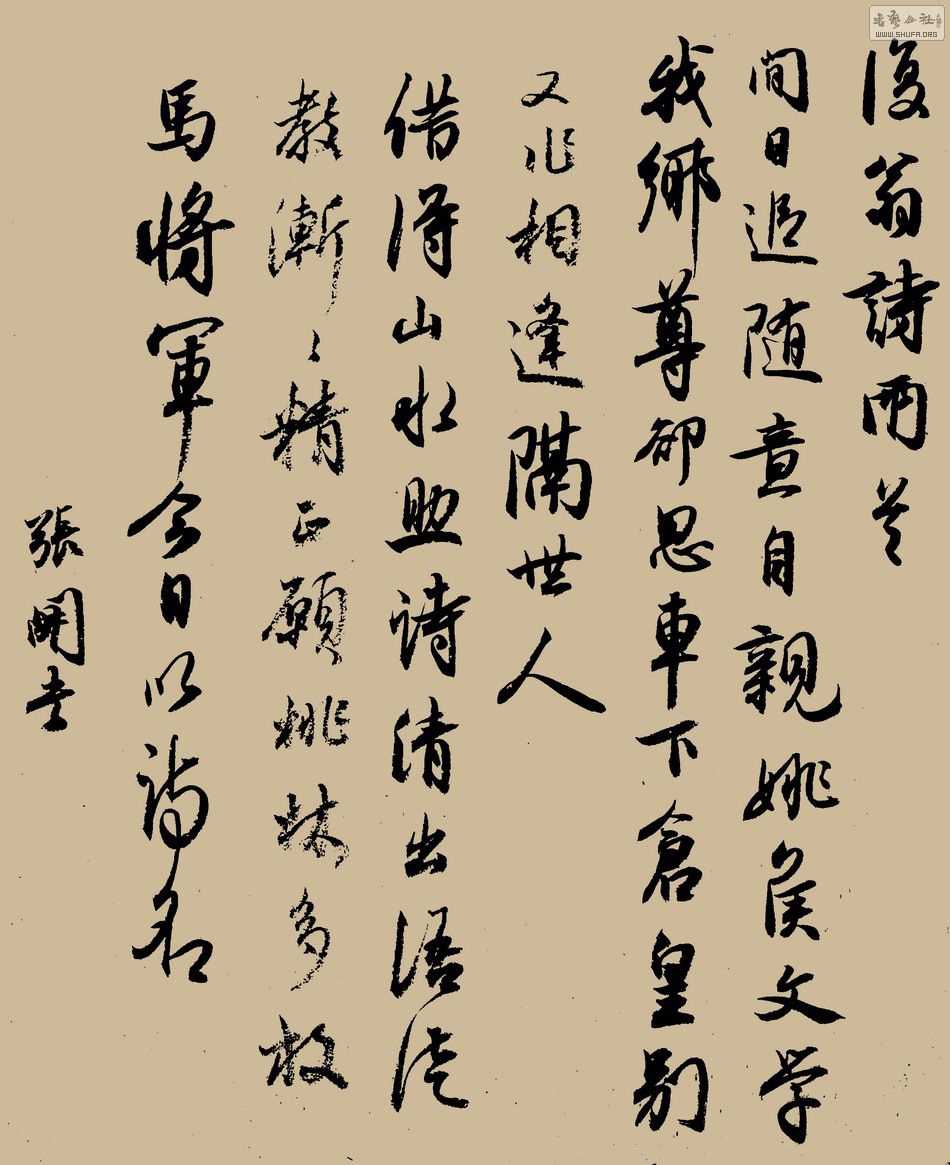 書藝公社
WWW.SHUFA.ORG
復翁詩兩首
間日追随意自親姚侯文学
我鄉尊卻思車下倉皇別
又作相逢隔世人
借得山水助詩清出語從
教漸々精正願桃林多放
馬將軍今日以詩名
張開